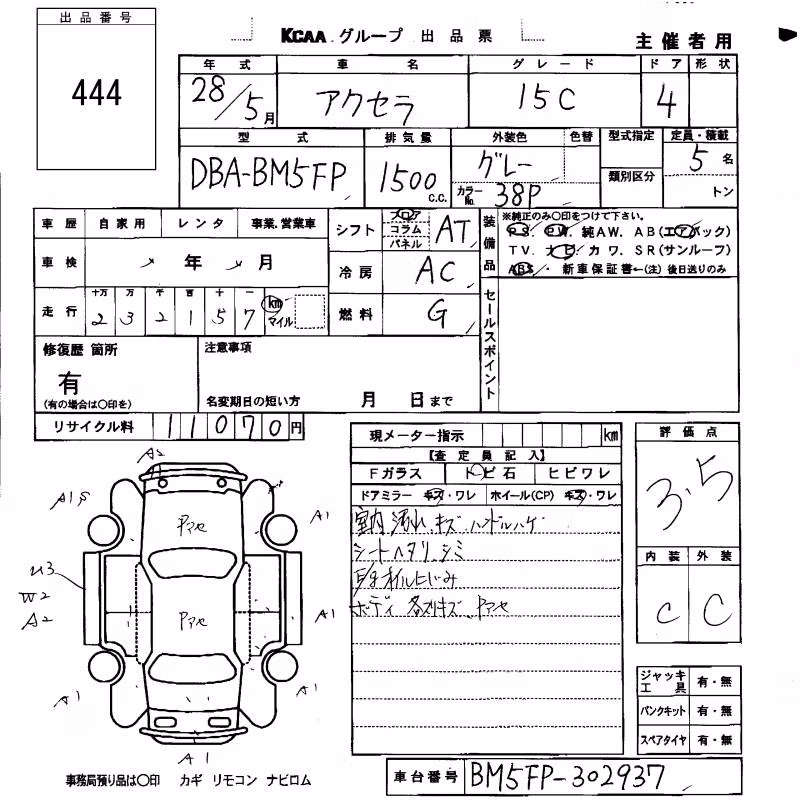 出品番号
444
KCAA グループ 出品票
主催者用
年式 車名 グレード ドア 形状
28/5月 アクセラ 15C 4
型式 排気量 外装色 色替 型式指定 定員・積載
DBA-BM5FP 1500 C.C. グレー カラーNo. 38P 類別区分 5名 トン
車歴 自家用 レンタ 事業.営業車
車検 年 月
走行 十万 万 千 百 十 一
2 3 2 1 5 7 km マイル
シフト フロア コラム パネル AT
冷房 AC
燃料 G
装備品 ※純正のみ○印をつけて下さい。
P S. P W. 純AW. AB(エアバック)
TV. ナビ. カワ. SR(サンルーフ)
ABS. 新車保証書←(注) 後日送りのみ
セールスポイント
修復歴 箇所
有
(有の場合は○印を)
注意事項
名変期日の短い方 月 日まで
リサイクル料 11070円
現メーター指示 km
【査定員記入】
Fガラス トビ石 ヒビワレ
ドアミラー キズ・ワレ ホイール(CP) キズ・ワレ
室内 汚れ、キズ、ハンドルハゲ
シートヘタリ、シミ
オイルにじみ
ボディ 各所キズ、Pアセ
評価点
3.5
内装 外装
C C
A2
A1S
A1
Pアセ
U3
W2
A2
Pアセ
A1
A1
A1
A1
ジャッキ工具 有・無
パンクキット 有・無
スペアタイヤ 有・無
事務局預り品は○印 カギ リモコン ナビロム
車台番号 BM5FP-302937